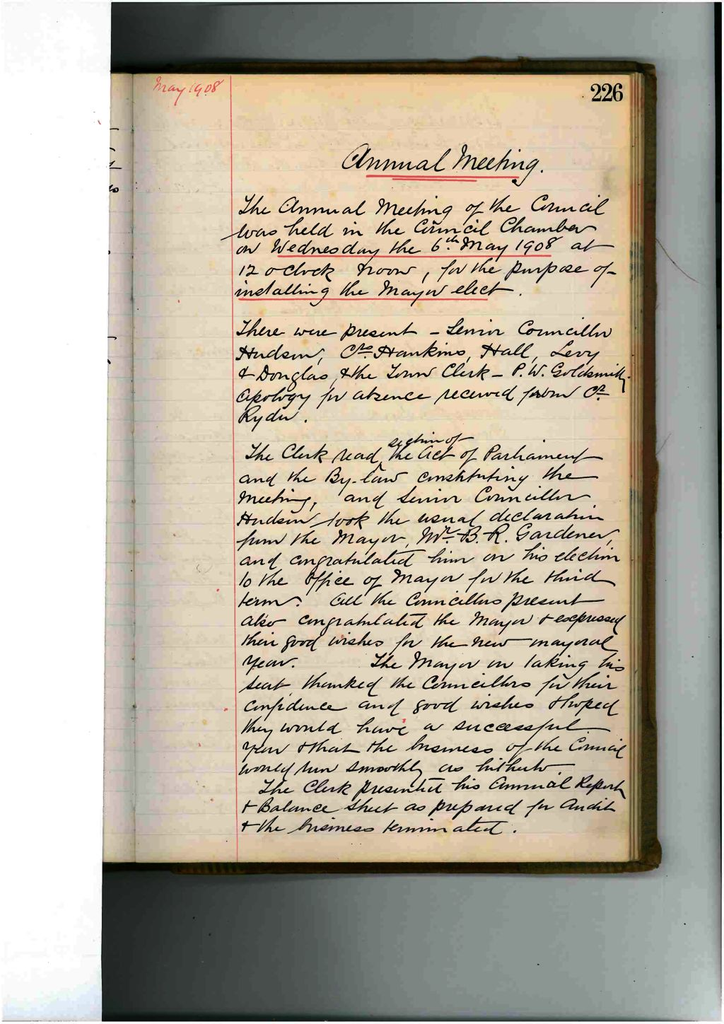 May 1908
226
Annual Meeting.
The Annual Meeting of the Council
was held in the Council Chamber
on Wednesday the 6th May 1908 at
12 o'clock noon, for the purpose of
installing the Mayor elect.
There were present – Senior Councillor
Hudson, Crs Hawkins, Hall, Levy
& Douglas, & the Town Clerk – P. W. Goldsmith,
apology for absence received from Cr
Ryder.
section of
The Clerk read the Act of Parliament
and the By-law constituting the
Meeting, and Senior Councillor
Hudson took the usual declaration
from the Mayor, Mr B. R. Gardener,
and congratulated him on his election
to the Office of Mayor for the third
term. All the Councillors present
also congratulated the Mayor & expressed
their good wishes for the new mayoral
year. The Mayor on taking his
seat thanked the Councillors for their
confidence and good wishes & hoped
they would have a successful
year & that the business of the Council
would run smoothly as hitherto.
The Clerk presented his Annual Report
& Balance Sheet as prepared for Audit
& the business terminated.